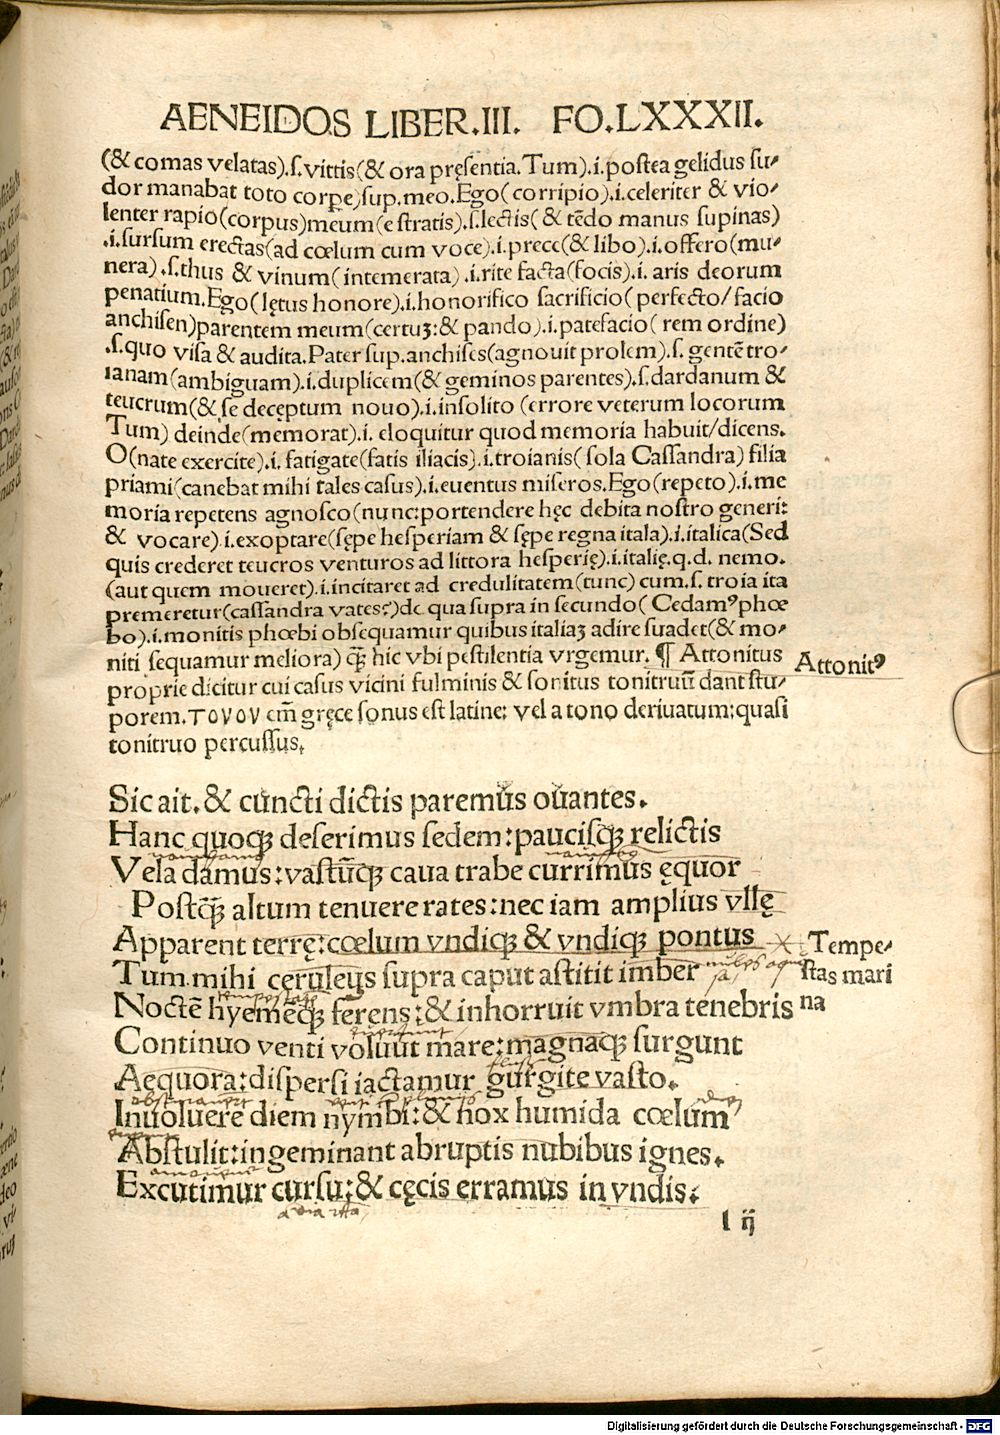 AENEIDOS LIBER.III. FO.LXXXII.
(& comas velatas).ſ.vittis(& ora pręſentia.Tum).i.poſtea gelidus ſu⸗
dor manabat toto corpe)ſup.meo.Ego(corripio).i.celeriter & vio⸗
lenter rapio(corpus)meum(e ſtratis).ſ.lectis(& tēdo manus ſupinas)
.i.ſurſum erectas(ad cœlum cum voce).i.prece(& libo).i.offero(mu⸗
nera).ſ.thus & vinum(intemerata).i.rite facta(focis).i. aris deorum
penatium.Ego(lętus honore).i.honorifico ſacrificio(perfecto/facio
anchiſen)parentem meum(certuꝫ:& pando).i.patefacio(rem ordine)
.ſ.quo viſa & audita.Pater ſup.anchiſes(agnouit prolem).ſ.gentē tro⸗
ianam(ambiguam).i.duplicem(& geminos parentes).ſ.dardanum &
teucrum(& ſe decęptum nouo).i.inſolito (errore veterum locorum
Tum) deinde(memorat).i. eloquitur quod memoria habuit/dicens.
O(nate exercite).i. fatigate(fatis iliacis).i.troianis(ſola Caſſandra) filia
priami(canebat mihi tales caſus).i.euentus miſeros.Ego(repeto).i.me
moria repetens agnoſco(nunc:portendere hęc debita noſtro generi:
& vocare).i.exoptare(ſępe heſperiam & ſępe regna itala).i.italica(Sed
quis crederet teucros venturos ad littora heſperię).i.italię.q.d. nemo.
(aut quem moueret).i.incitaret ad credulitatem(tunc) cum.ſ.troia ita
premeretur(caſſandra vates?)de qua ſupra in ſecundo(Cedamꝰ phœ
bo).i.monitis phœbi obſequamur quibus italiaꝫ adire ſuadet(& mo⸗
niti ſequamur meliora) ꝙ̄ hic vbi peſtilentia vrgemur. ¶ Attonitus
Attonitꝰ
proprie dicitur cui caſus vicini fulminis & ſonitus tonitruū dant ſtu⸗
porem.τονον em̄ gręce ſonus eſt latine: vel a tono deriuatum:quaſi
tonitruo percuſſus.
Sic ait.& cuncti dictis paremus ouantes.
Hanc quoqꝫ deſerimus ſedem:pauciſqꝫ relictis
Vela damus:vaſtūqꝫ caua trabe currimus ęquor
Poſtꝙ̄ altum tenuere rates:nec iam amplius vllę
Apparent terrę:cœlum vndiqꝫ & vndiqꝫ pontus
Tempe⸗
Tum mihi ceruleus ſupra caput aſtitit imber
ſtas mari
Noctē hyemēqꝫ ferens:& inhorruit vmbra tenebris
na
Continuo venti voluūt mare:magnaqꝫ ſurgunt
Aequora:diſperſi iactamur gurgite vaſto.
Inuoluere diem nymbi:& nox humida cœlum
Abſtulit:ingeminant abruptis nubibus ignes.
Excutimur curſu:& cęcis erramus in vndis.
l ij
Digitalisierung gefördert durch die Deutsche Forschungsgemeinschaft - DFG